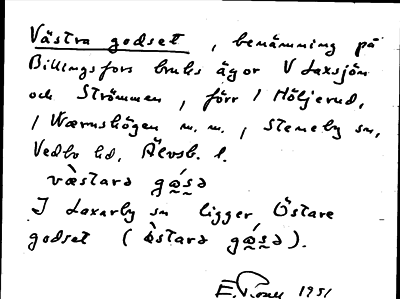 Västra godset, benämning på
Billingsfors bruks ägor V Laxsjön
och Strömmen, förr 1 Höljerud,
1 Wærnshögen m. m., Steneby sn,
Vedbo hd, Älvsb. l.
væ̀starə gǫ́sə
I Laxarby sn ligger Östare
godset (ö̀starə gǫ́sə).
E. 1951